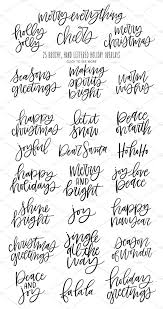 merry everything
holly
jolly
cheers
merry
christmas
25 BRUSHY, HAND LETTERED HOLIDAY DESIGNS
CLICK TO SEE MORE
seasons
greetings
making
spirits
bright
warm
wishes
happy
christmas
let it
snow
peace
on earth
joyful
Dear Santa
HoHoHo
happy
holidays
merry
and
bright
joy love
peace
shine
bright
joy
happy
new year
christmas
greetings
jingle
all the
way
season
of wonder
Peace
AND
joy
fa la la
holiday
greetings